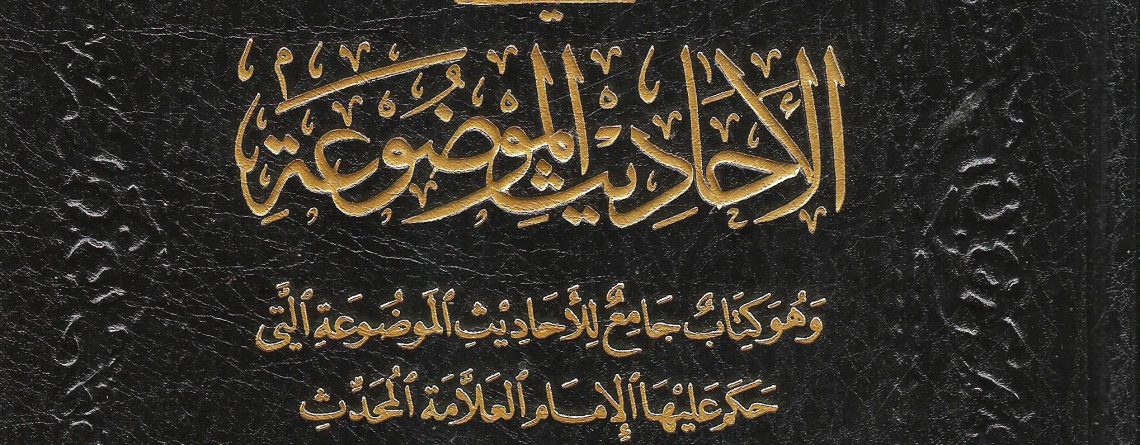 في
الأَحَادِيثِ المَوْضُوعَةِ
وَهُوَ كِتَابٌ جَامِعٌ لِلأَحَادِيْثِ ٱلمَوضُوعَةِ ٱلَّتِى
حَكَمَ عَلَيْهَا ٱلإِمَامِ ٱلعَلَّامَة ٱلمُحَدِّثِ